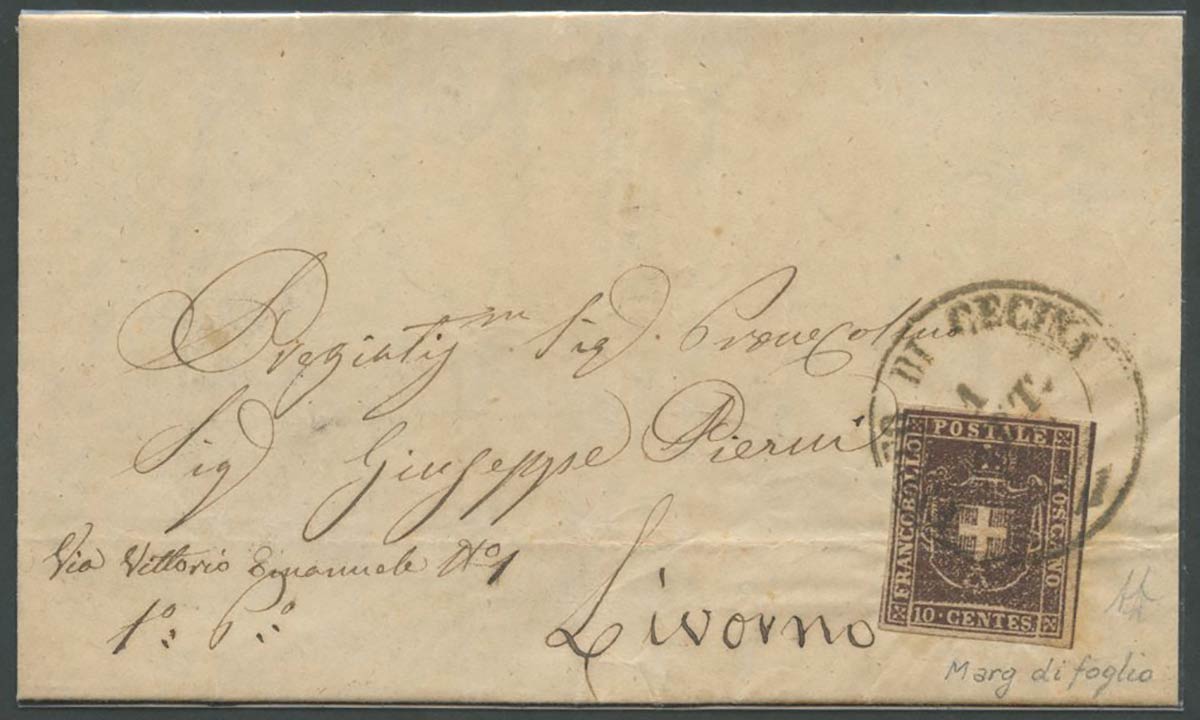 Pregiatis.mo Sig.
Sig Giuseppe Pierini
Via Vittorio Emanuele No 1
1o: Po:
Livorno
DI CECINA
1
FRANCOBOLLO
POSTALE
TOSCANO
10 · CENTES.
Marg di foglio